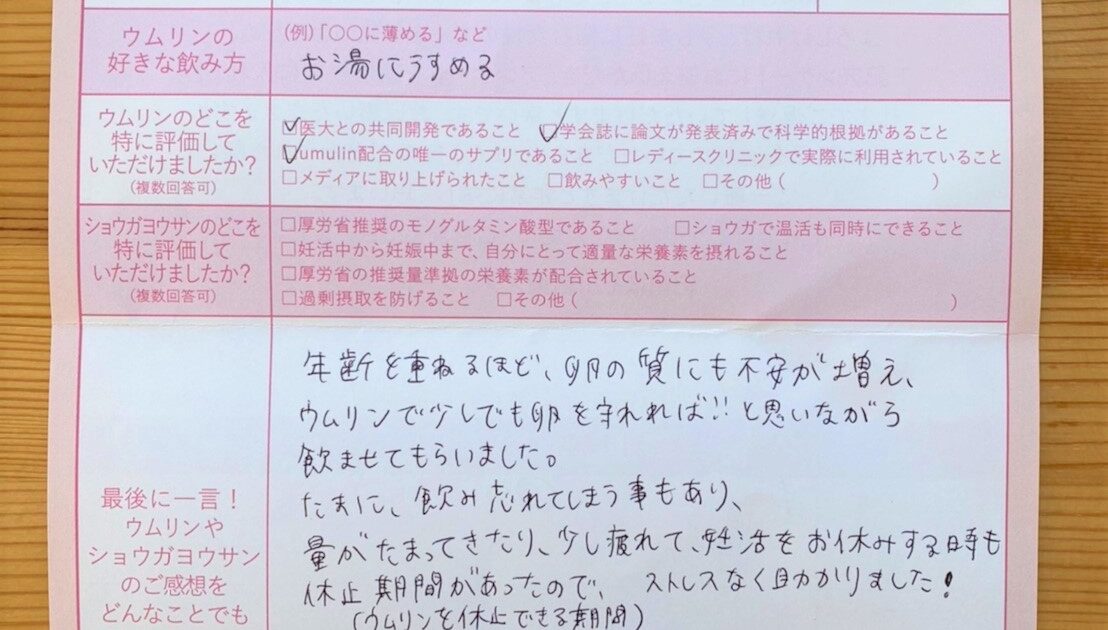 ウムリンの
好きな飲み方
(例)「〇〇に薄める」など
お湯にうすめる
ウムリンのどこを
特に評価して
いただけましたか?
(複数回答可)
☑医大との共同開発であること ☑学会誌に論文が発表済みで科学的根拠があること
☑umulin配合の唯一のサプリであること □レディースクリニックで実際に利用されていること
□メディアに取り上げられたこと □飲みやすいこと □その他( )
ショウガヨウサンのどこを
特に評価して
いただけましたか?
(複数回答可)
□厚労省推奨のモノグルタミン酸型であること □ショウガで温活も同時にできること
□妊活中から妊娠中まで、自分にとって適量な栄養素を摂れること
□厚労省の推奨量準拠の栄養素が配合されていること
□過剰摂取を防げること □その他( )
最後に一言!
ウムリンや
ショウガヨウサン
のご感想を
どんなことでも
年齢を重ねるほど、卵の質にも不安が増え、
ウムリンで少しでも卵を守れれば!!と思いながら
飲ませてもらいました。
たまに、飲み忘れてしまう事もあり、
量がたまってきたり、少し疲れて、妊活をお休みする時も
休止期間があったので、ストレスなく助かりました!
(ウムリンを休止できる期間)